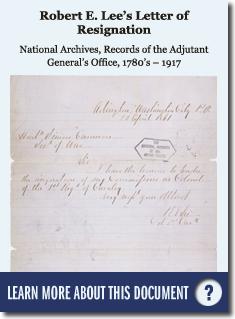 Robert E. Lee's Letter of
Resignation
National Archives, Records of the Adjutant
General's Office, 1780's – 1917
Arlington, Washington City P.O.
20 April 1861
Honble Simon Cameron
Secy of War
Sir
I have the honour to tender
the resignation of my Commission as Colonel
of the 1st Regt of Cavalry
Very respy your Obt Servt
R E Lee
Col 1st Cavy
LEARN MORE ABOUT THIS DOCUMENT ?